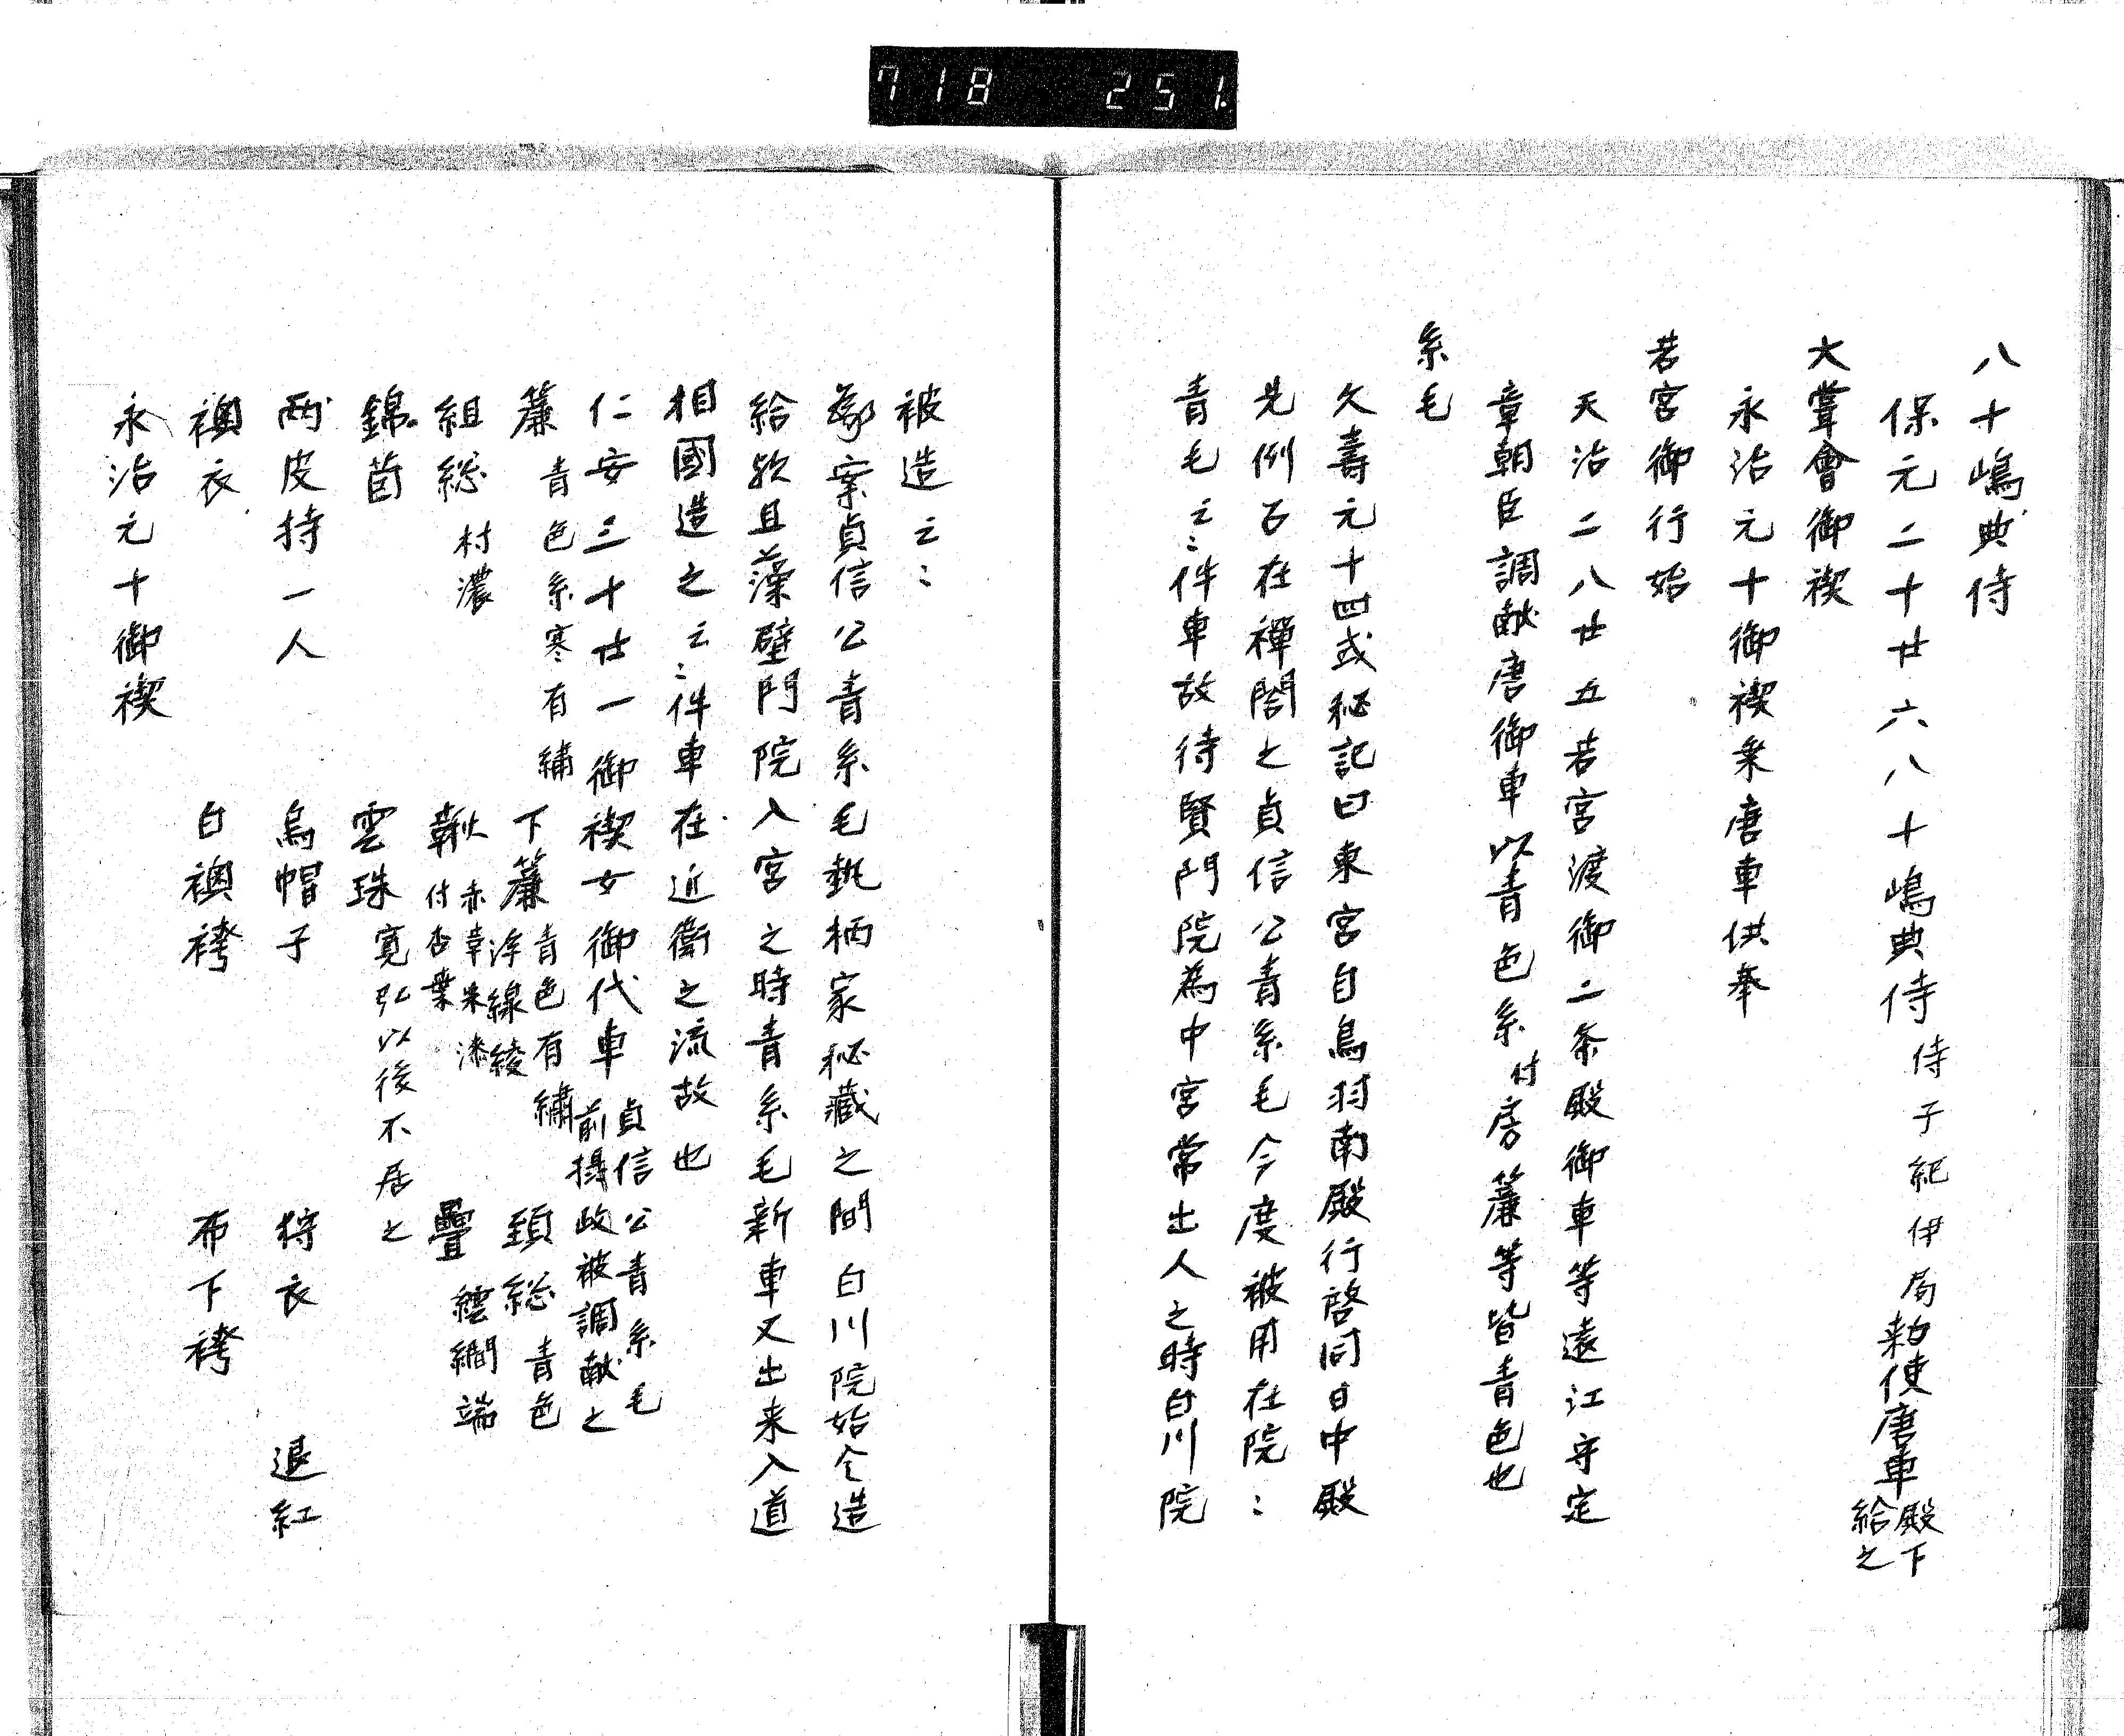 718 251
八十嶋典侍
保元二十廿六八十嶋典侍 侍子紀伊局 勅使唐車 殿下給之
大甞會御禊
永治元十御禊乗唐車供奉
若宮御行始
天治二八廿五若宮渡御二条殿御車等遠江守定
章朝臣調献唐御車以青色糸付房簾等皆青色也
糸毛
久壽元十四或秘記曰東宮自鳥羽南殿行啓同日中殿
先例召在禅閤之貞信公青糸毛今度被用在院〻
青毛云〻件車故待賢門院為中宮常出入之時白川院
被造云〻
案貞信公青糸毛執柄家秘蔵之間白川院始令造
給歟且藻壁門院入宮之時青糸毛新車又出来入道
相國造之云〻件車在近衛之流故也
仁安三十廿一御禊女御代車 貞信公青糸毛 前摂政被調献之
簾 青色糸寒有繍 下簾 青色有繍 浮線綾 頚総 青色
組総 村濃 鞦 赤韋朱漆 付杏葉 疊 繧繝端
錦茵 雲珠 寛弘以後不居之
雨皮持一人 烏帽子 狩衣 退紅
襖衣 白襖袴 布下袴
永治元十御禊